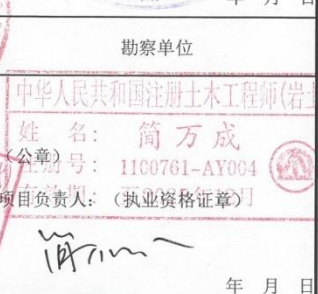 年 月 日
勘察单位
中华人民共和国注册土木工程师(岩土
姓 名: 简万成
(公章)
注册号: 1100761-AY004
有效期: 至2025年12月
项目负责人: (执业资格证章)
年 月 日